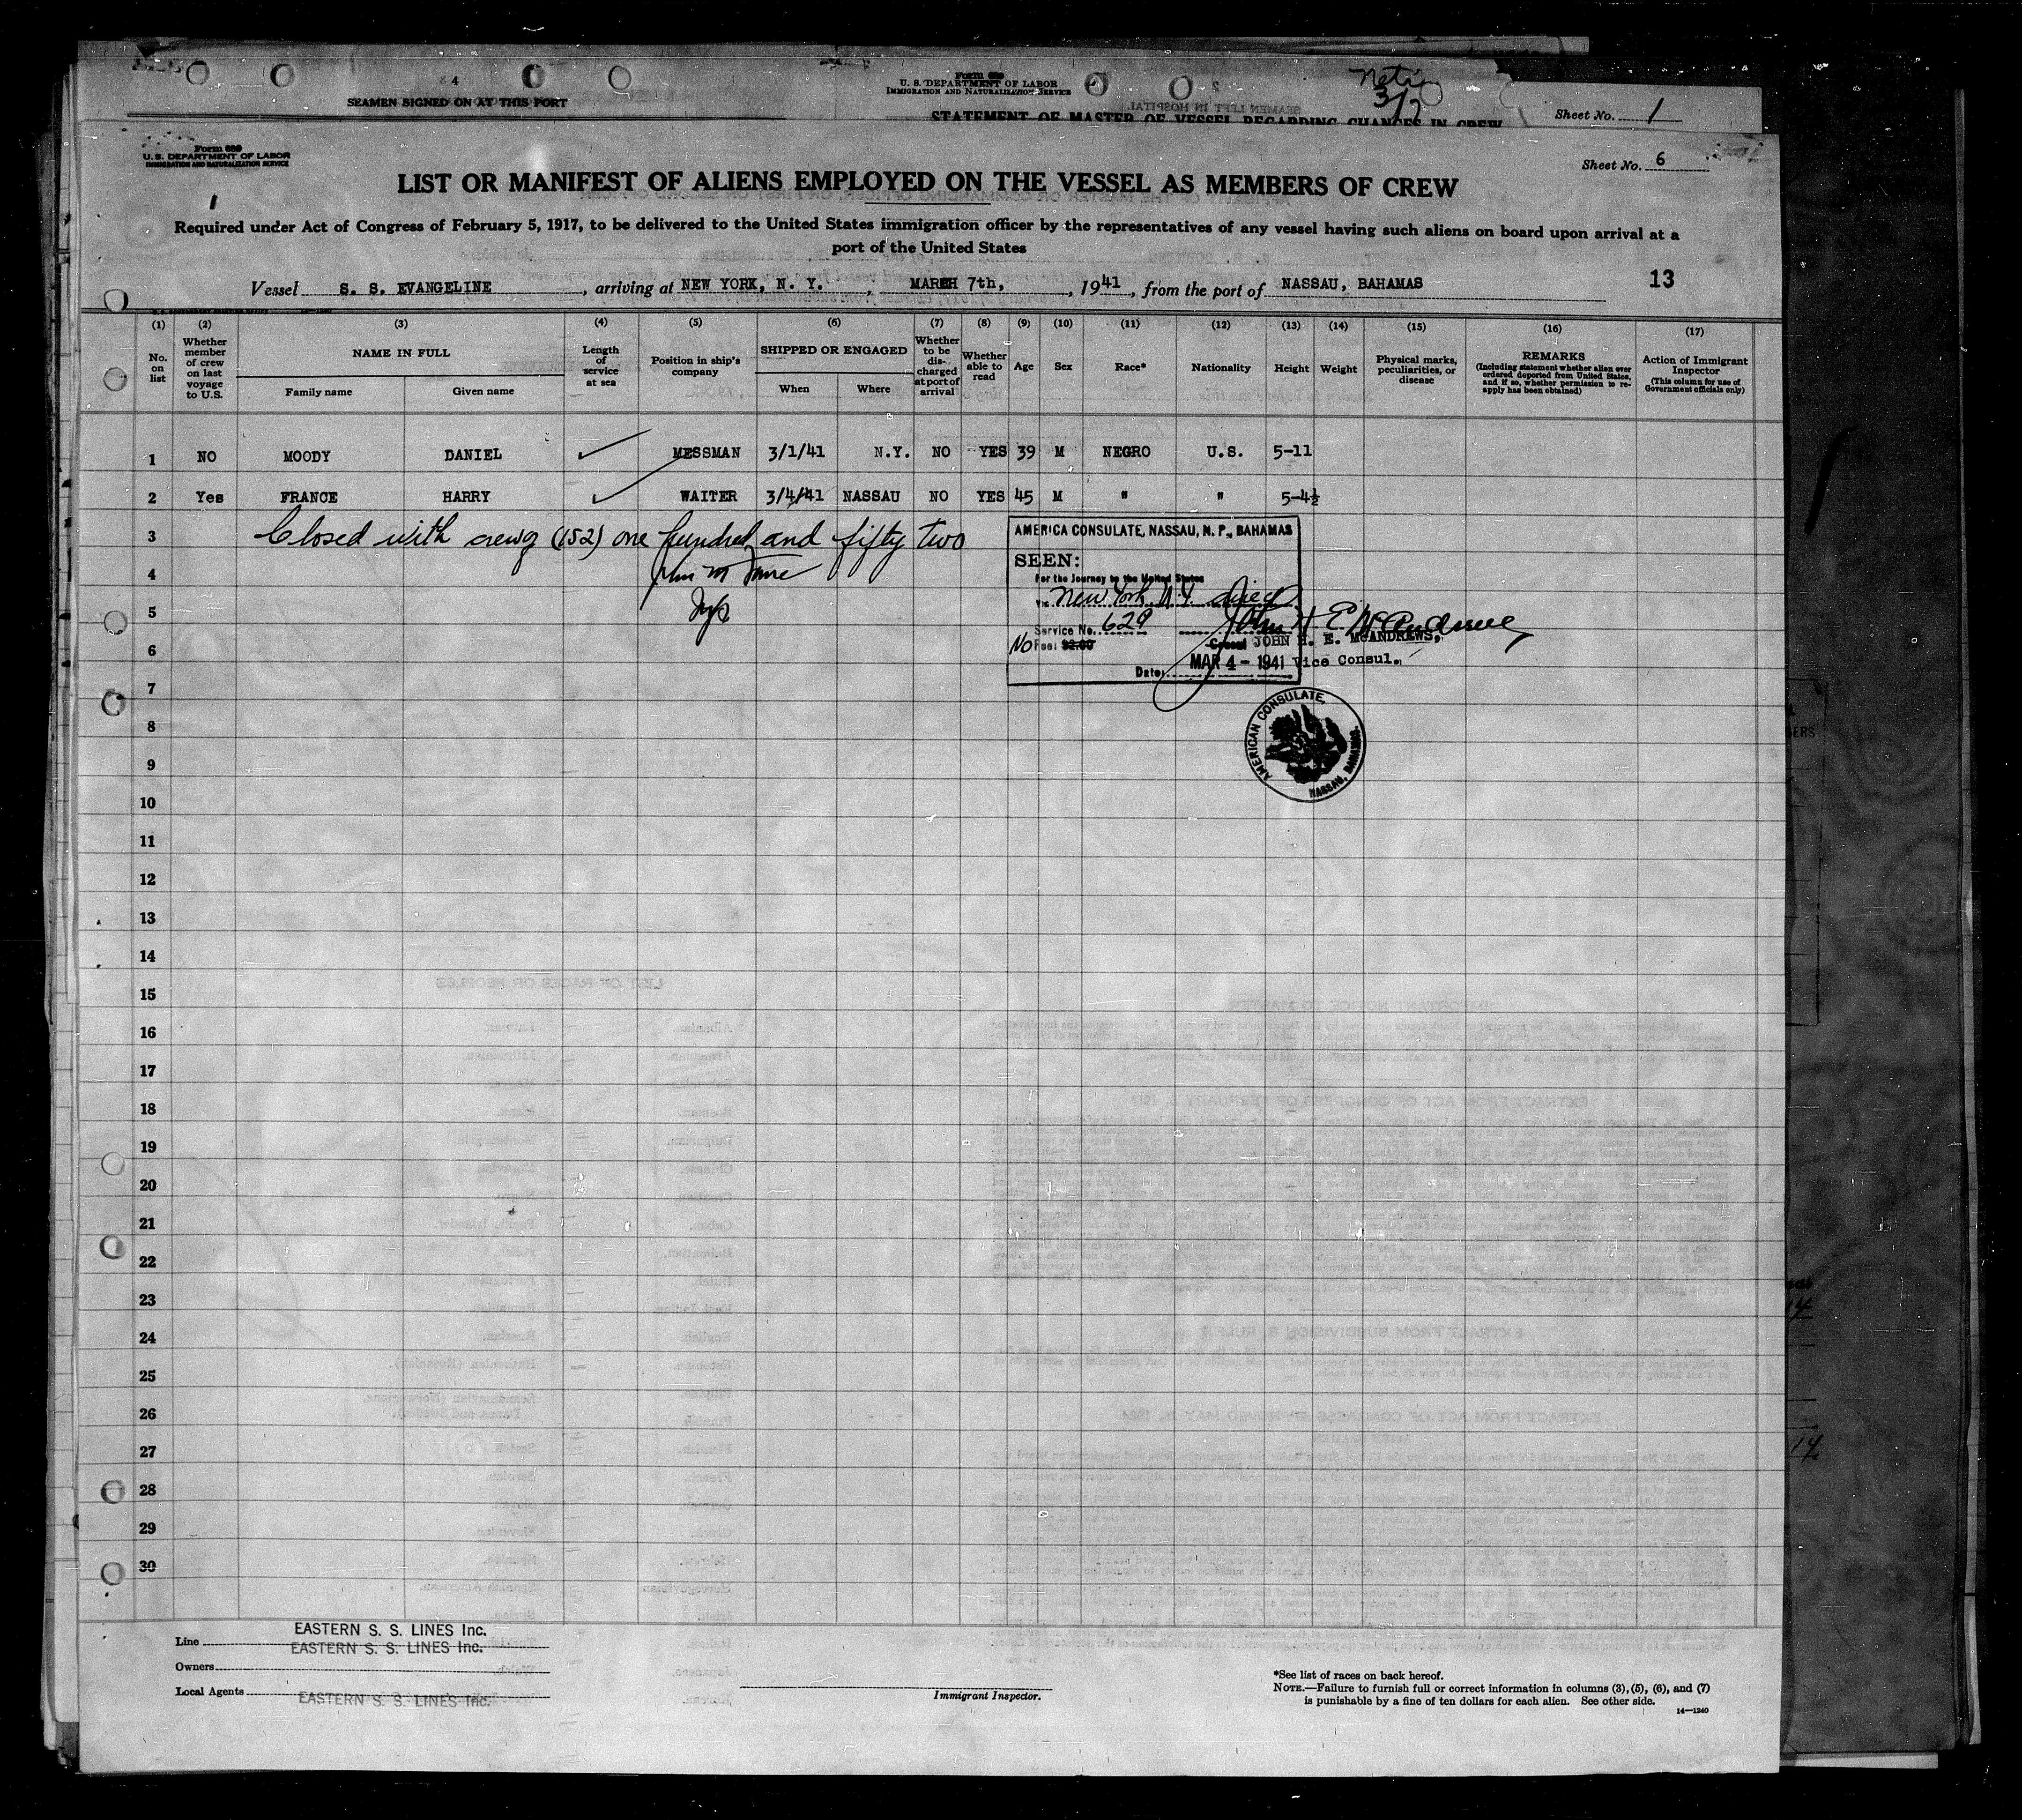 4
SEAMEN SIGNED ON AT THIS PORT
Form 689
U. S. DEPARTMENT OF LABOR
IMMIGRATION AND NATURALIZATION SERVICE
STATEMENT OF MASTER OF VESSEL REGARDING CHANGES IN CREW
3/7
Sheet No. 1
Form 689
U. S. DEPARTMENT OF LABOR
IMMIGRATION AND NATURALIZATION SERVICE
Sheet No. 6
1
LIST OR MANIFEST OF ALIENS EMPLOYED ON THE VESSEL AS MEMBERS OF CREW
Required under Act of Congress of February 5, 1917, to be delivered to the United States immigration officer by the representatives of any vessel having such aliens on board upon arrival at a
port of the United States
Vessel S. S. EVANGELINE, arriving at NEW YORK, N. Y., MARCH 7th, 1941, from the port of NASSAU, BAHAMAS 13
(1) (2) (3) (4) (5) (6) (7) (8) (9) (10) (11) (12) (13) (14) (15) (16) (17)
No. on list
Whether member of crew on last voyage to U.S.
NAME IN FULL
Family name
Given name
Length of service at sea
Position in ship's company
SHIPPED OR ENGAGED
When
Where
Whether to be discharged at port of arrival
Whether able to read
Age
Sex
Race*
Nationality
Height
Weight
Physical marks, peculiarities, or disease
REMARKS
(Including statement whether alien ever ordered deported from United States, and if so, whether permission to reapply has been obtained)
Action of Immigrant Inspector
(This column for use of Government officials only)
1 NO MOODY DANIEL MESSMAN 3/1/41 N.Y. NO YES 39 M NEGRO U.S. 5-11
2 Yes FRANCE HARRY WAITER 3/4/41 NASSAU NO YES 45 M " " 5-4½
3 Closed with crew of (152) one hundred and fifty two
4
5
6
7
8
9
10
11
12
13
14
15
16
17
18
19
20
21
22
23
24
25
26
27
28
29
30
AMERICA CONSULATE, NASSAU, N. P., BAHAMAS
SEEN:
For the Journey to the United States
Via New York, N.Y. direct
Service No. 629
John H. E. McAndrews
No Fee: $2.00
Consul JOHN H. E. McANDREWS,
Date: MAR 4 - 1941 Vice Consul.
AMERICAN CONSULATE,
NASSAU, BAHAMAS.
Line EASTERN S. S. LINES Inc.
EASTERN S. S. LINES Inc.
Owners
Local Agents EASTERN S. S. LINES Inc.
Immigrant Inspector.
*See list of races on back hereof.
NOTE.—Failure to furnish full or correct information in columns (3), (5), (6), and (7)
is punishable by a fine of ten dollars for each alien. See other side.
14—1240